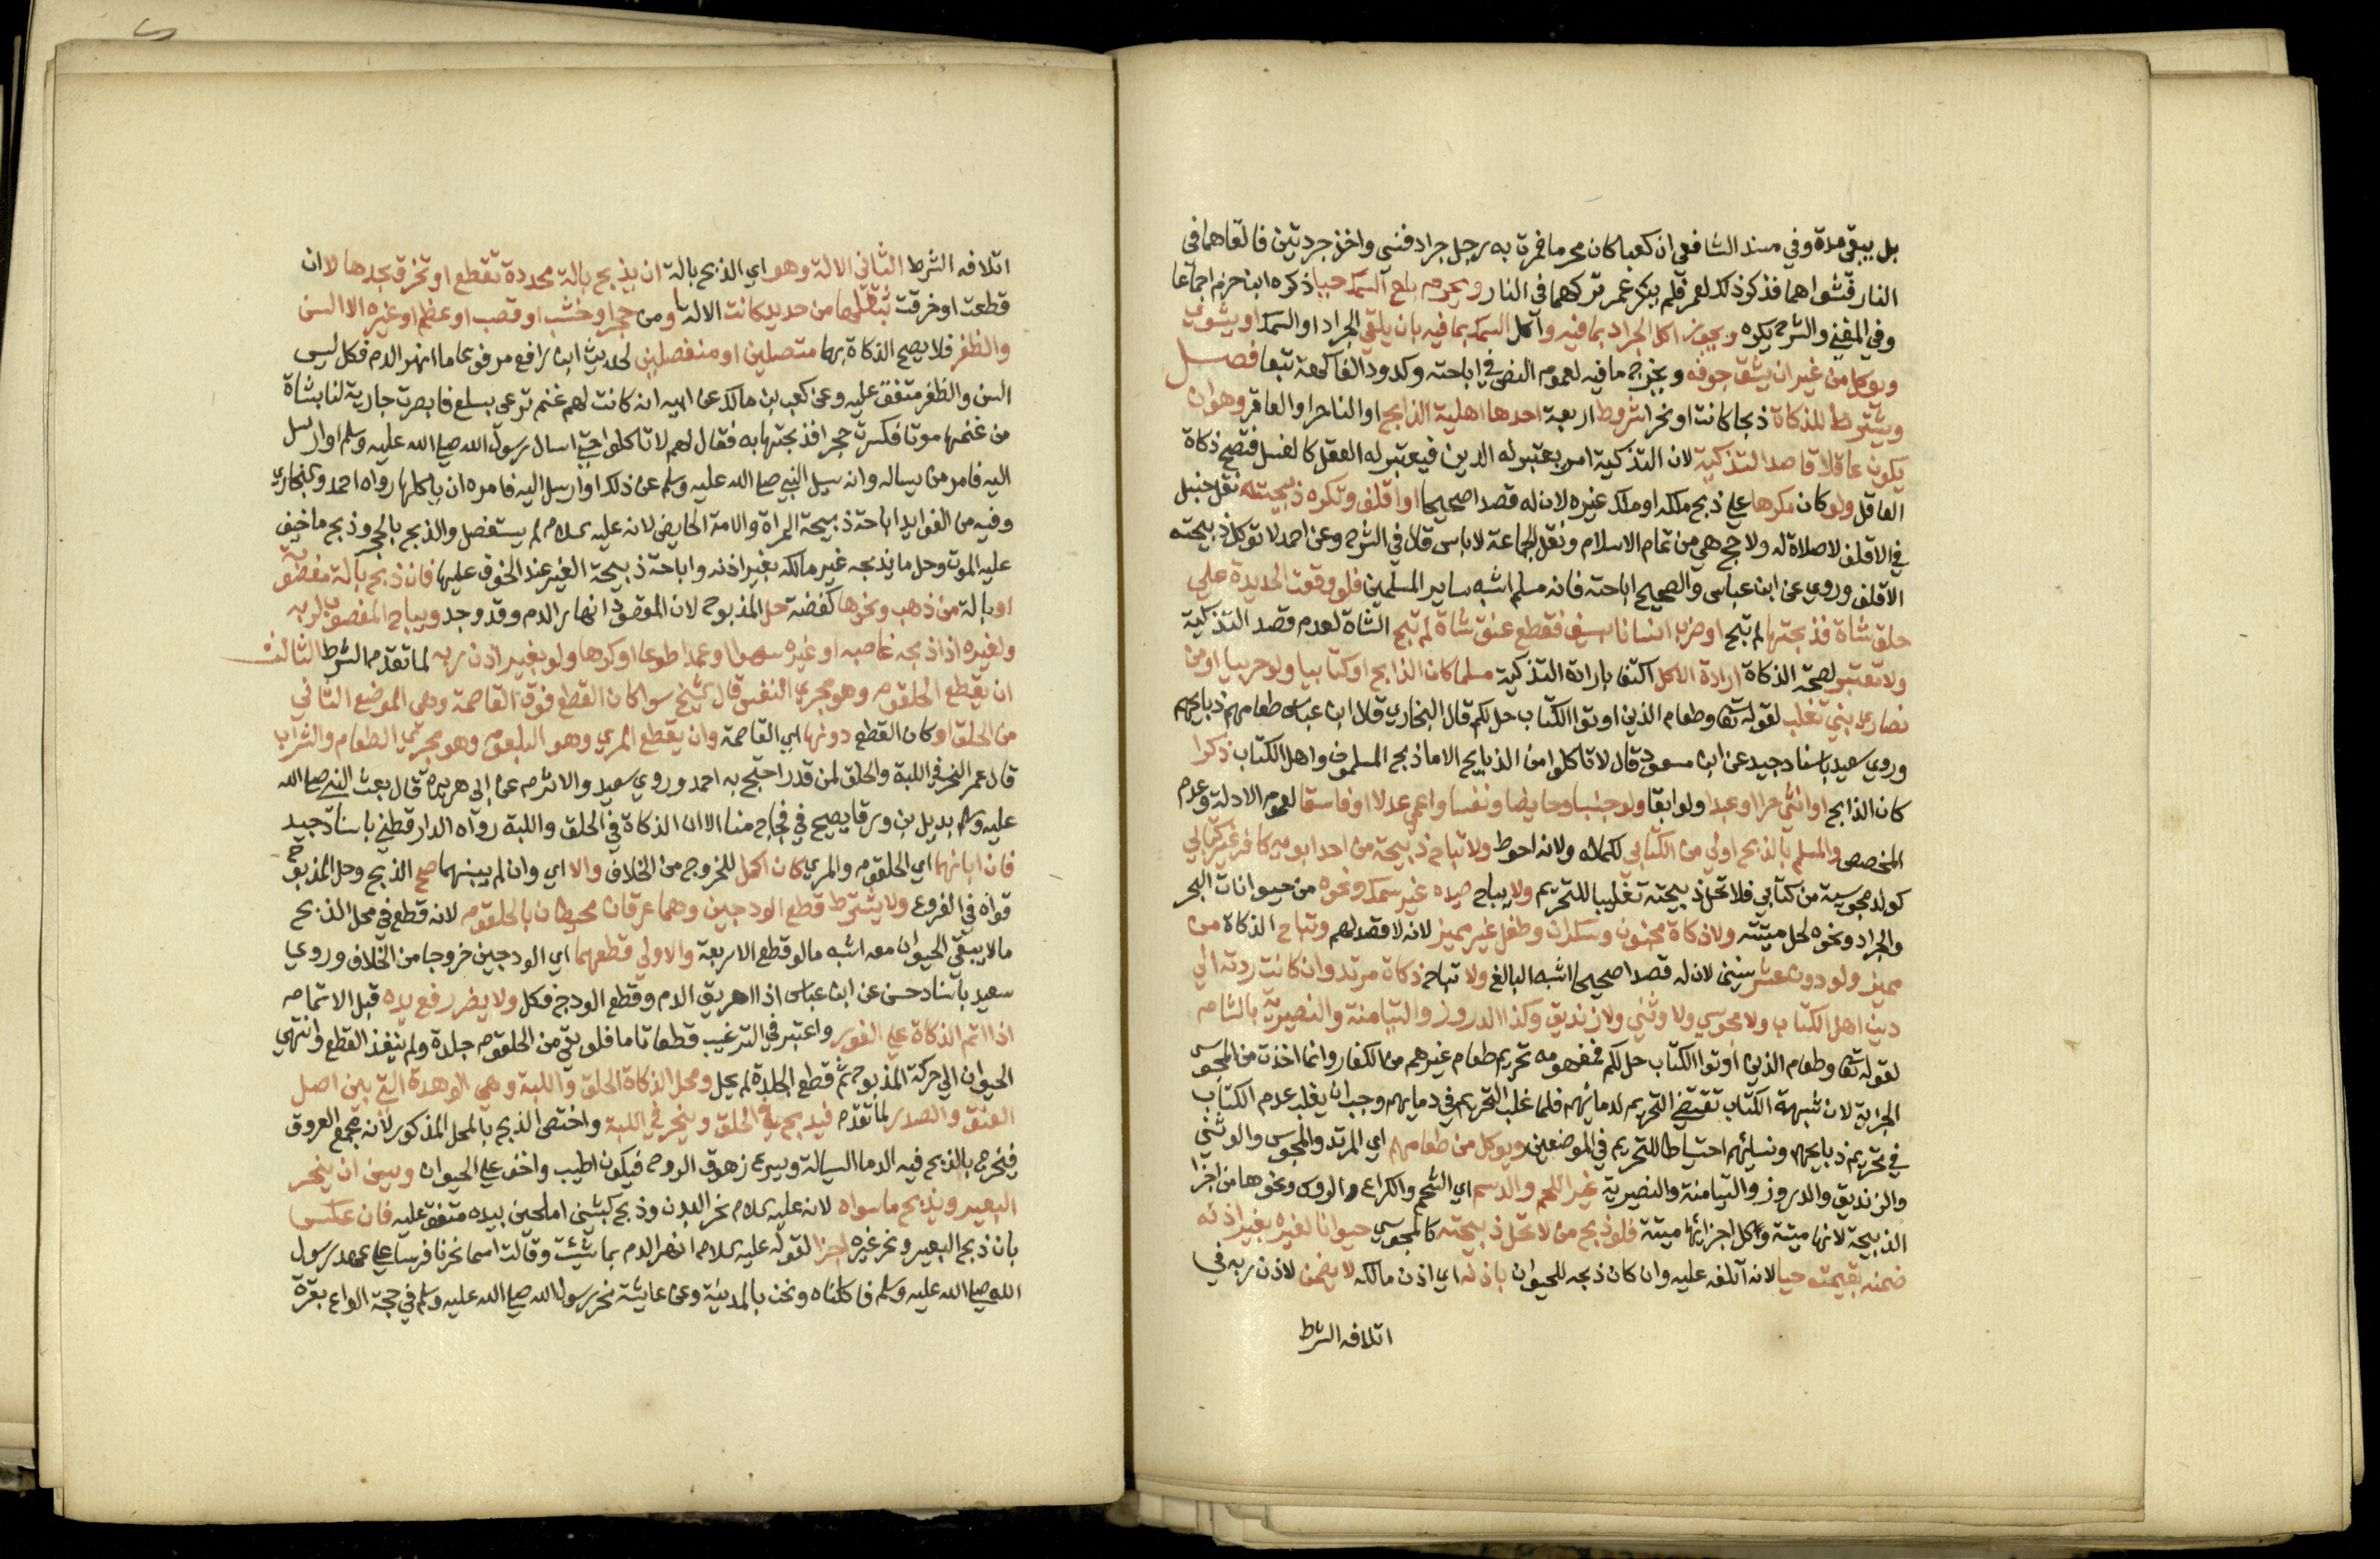 بل يبقى مدة وفي مسند الشافعي ان كعبا كان محرما فمرت به رجل جراد فنسي واخذ جردتين فالقاهما في
النار فشواهما فذكر ذلك لعمر فلم ينكر عمر تركهما في النار ويحرم بلع السمك حيا ذكره ابن حزم اجماعا
وفي المغني والشرح يكره ويجوز اكل الجراد بما فيه واكل السمك بما فيه بان يلقى الجراد او السمك او يشوى
ويوكل من غير ان يشق جوفه ويخرج ما فيه لعموم النص في اباحته وكدود الفاكهة تبعا فصل
ويشترط للذكاة ذبحا كانت او نحرا شروط اربعة احدها اهلية الذابح او الناحر او العاقر وهو ان
يكون عاقلا قاصدا التذكية لان التذكية امر يعتبر له الدين فيعتبر له العقل كالغسل فتصح ذكاة
العاقل ولو كان مكرها على ذبح ملكه او ملك غيره لان له قصدا صحيحا او اقلف وتكره ذبيحته نقل حنبل
في الاقلف لا صلاة له ولا حج هي من تمام الاسلام ونقل الجماعة لا باس قال في الشرح وعن احمد لا توكل ذبيحته
الاقلف وروي عن ابن عباس والصحيح اباحته فانه مسلم اشبه ساير المسلمين فلو وقعت الحديدة على
حلق شاة فذبحتها لم تبح او ضرب انسانا بسيف فقطع عنق شاة لم تبح الشاة لعدم قصد التذكية
ولا تعتبر لصحة الذكاة ارادة الاكل اكتفا بارادة التذكية مسلما كان الذابح او كتابيا ولو حربيا او من
نصارى بني تغلب لقوله تعا وطعام الذين اوتوا الكتاب حل لكم قال البخاري قال ابن عباس طعامهم ذبايحهم
وروي سعيد باسناد جيد عن ابن مسعود قال لا تاكلوا من الذبايح الا ما ذبح المسلمون واهل الكتاب ذكرا
كان الذابح او انثى حرا او عبدا ولو ابقا ولو جنبا وحايضا ونفسا واعمى عدلا او فاسقا لعموم الادلة وعدم
المخصص والمسلم بالذبح اولى من الكتابي لكماله ولانه احوط ولا تباح ذبيحة من احد ابويه كافر غير كتابي
كولد مجوسية من كتابي فلا تحل ذبيحته تغليبا للتحريم ولا يباح صيده غير سمك ونحوه من حيوانات البحر
والجراد ونحوه لحل ميتته ولا ذكاة مجنون وسكران وطفل غير مميز لانه لا قصد لهم وتباح الذكاة من
مميز ولو دون عشر سنين لان له قصدا صحيحا اشبه البالغ ولا تباح ذكاة مرتد وان كانت ردته الى
دين اهل الكتاب ولا مجوسي ولا وثني ولا زنديق وكذا الدروز والتيامنة والنصيرية بالشام
لقوله تعا وطعام الذين اوتوا الكتاب حل لكم فمفهومه تحريم طعام غيرهم من الكفار وانما اخذت من المجوس
الجزية لان شبهة الكتاب تقتضي التحريم لدمائهم فلما غلب التحريم في دمايهم وجب ان يغلب عدم الكتاب
في تحريم ذبايحهم ونسائهم احتياطا للتحريم في الموضعين ويوكل من طعامهم اي المرتد والمجوس والوثني
والزنديق والدروز والتيامنة والنصيرية غير اللحم والدسم اي الشحم والكراع والروس ونحوها من اجزا
الذبيحة لانها ميتة وكل اجزائها ميتة فلو ذبح من لا تحل ذبيحته كالمجوسي حيوانا لغيره بغير اذنه
ضمنه بقيمته حيا لانه اتلفه عليه وان كان ذبحه للحيوان باذنه اي اذن مالكه لا يضمن لاذن ربه في
اتلافه الشرط
اتلافه الشرط الثاني الالة وهو اي الذبح بالة ان يذبح بالة محددة تقطع او تخرق بحدها لا ان
قطعت او خرقت بثقلها من حديد كانت الالة او من حجر او خشب او قصب او عظم او غيره الا السن
والظفر فلا يصح الذكاة بهما متصلين او منفصلين لحديث ابن رافع مرفوعا ما انهر الدم فكل ليس
السن والظفر متفق عليه وعن كعب بن مالك عن ابيه انه كانت لهم غنم ترعى بسلع فابصرت جارية لنا بشاة
من غنمها موتا فكسرت حجرا فذبحتها به فقال لهم لا تاكلوا حتى اسال رسول الله صلى الله عليه وسلم او ارسل
اليه فامر من يساله وانه سيل النبي صلى الله عليه وسلم عن ذلك او ارسل اليه فامره ان ياكلها رواه احمد والبخاري
وفيه من الفوايد اباحة ذبيحة المراة والامة الحايض لانه عليه السلام لم يستفصل والذبح بالحجر وذبح ما خيف
عليه الموت وحل ما يذبحه غير مالكه بغير اذنه واباحة ذبيحة الغير عند الخوف عليها فان ذبح بالة مغصوبة
او بالة من ذهب ونحوها كفضة حل المذبوح لان المقصود انهار الدم وقد وجد ويباح المغصوب لربه
ولغيره اذا ذبحه غاصبه او غيره سهوا او عمدا طوعا او كرها ولو بغير اذن ربه لما تقدم الشرط الثالث
ان يقطع الحلقوم وهو مجرى النفس قال الشيخ سوا كان القطع فوق الغاصمة وهي الموضع الناتي
من الحلق او كان القطع دونها اي الغاصمة وان يقطع المري وهو البلعوم وهو مجرى الطعام والشراب
قال عمر النحر في اللبة والحلق لمن قدر احتج به احمد وروي سعيد والاثرم عن ابي هريرة قال بعث النبي صلى الله
عليه وسلم بديل بن ورقا يصيح في فجاج منا الا ان الذكاة في الحلق واللبة رواه الدارقطني باسناد جيد
فان ابانهما اي الحلقوم والمري كان اكمل للخروج من الخلاف والا اي وان لم يبنهما صح الذبح وحل المذبوح
قواه في الفروع ولا يشترط قطع الودجين وهما عرقان محيطان بالحلقوم لانه قطع في محل الذبح
ما لا يبقى الحيوان معه اشبه ما لو قطع الاربعة والاولى قطعهما اي الودجين خروجا من الخلاف وروي
سعيد باسناد حسن عن ابن عباس اذا اهريق الدم وقطع الودج فكل ولا يضر رفع يده قبل الاتمام
اذا اتم الذكاة على الفور واعتبر في الترغيب قطعا تاما فلو بقي من الحلقوم جلدة ولم ينفذ القطع وانتهى
الحيوان الى حركة المذبوح ثم قطع الجلدة لم يحل ومحل الذكاة الحلق واللبة وهي الوهدة التي بين اصل
العنق والصدر لما تقدم فيذبح في الحلق وينحر في اللبة واختص الذبح بالمحل المذكور لانه مجمع العروق
فيخرج بالذبح فيه الدما السيالة ويسرع زهوق الروح فيكون اطيب واخف على الحيوان ويسن ان ينحر
البعير ويذبح ما سواه لانه عليه السلام نحر البدن وذبح كبشين املحين بيده متفق عليه فان عكس
بان ذبح البعير ونحر غيره اجزا لقوله عليه السلام انهر الدم بما شيت وقالت اسما نحرنا فرسا على عهد رسول
الله صلى الله عليه وسلم فاكلناه ونحن بالمدينة وعن عايشة نحر رسول الله صلى الله عليه وسلم في حجة الوداع بقرة